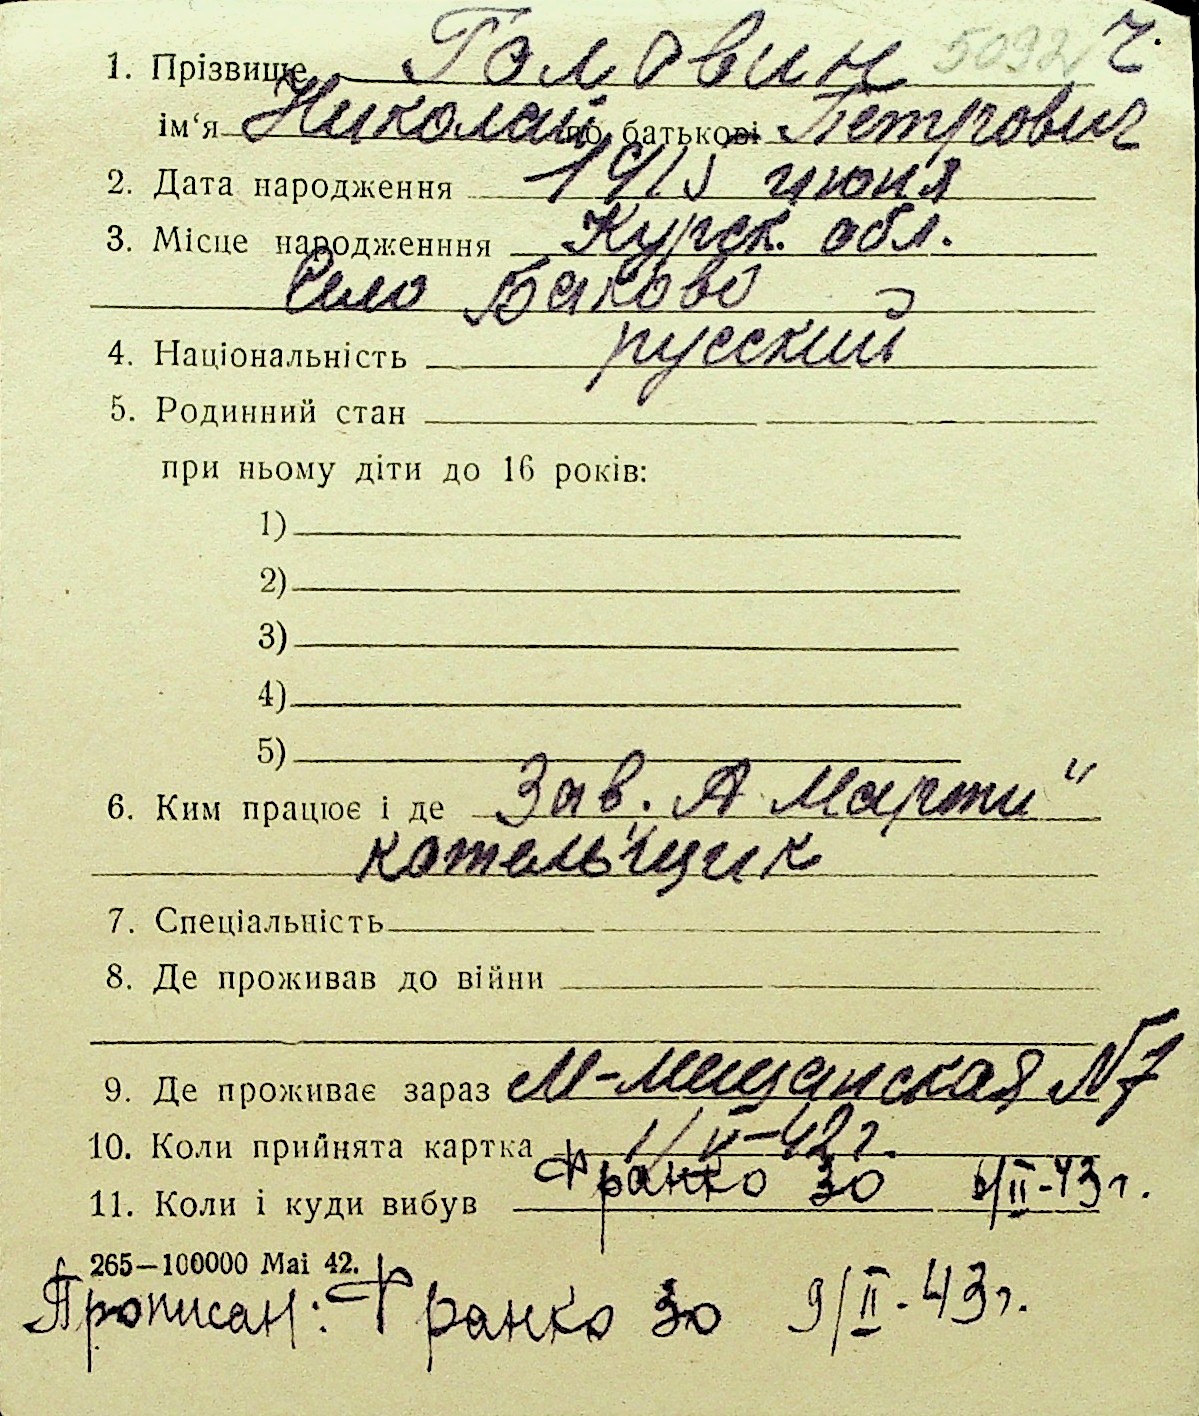 5092 г.
1. Прізвище Головин
ім‘я Николай по батькові Петрович
2. Дата народження 1915 июня
3. Місце народженння Курск. обл.
Село Баково
4. Національність русский
5. Родинний стан
при ньому діти до 16 років:
1)
2)
3)
4)
5)
6. Ким працює і де Зав. А Марти"
котельщик
7. Спеціальність
8. Де проживав до війни
9. Де проживає зараз М-Мещанская №7
10. Коли прийнята картка 42 г.
11. Коли і куди вибув Франко 30 6/II-43г.
265—100000 Mai 42.
Прописан: Франко 30 9/II-43г.